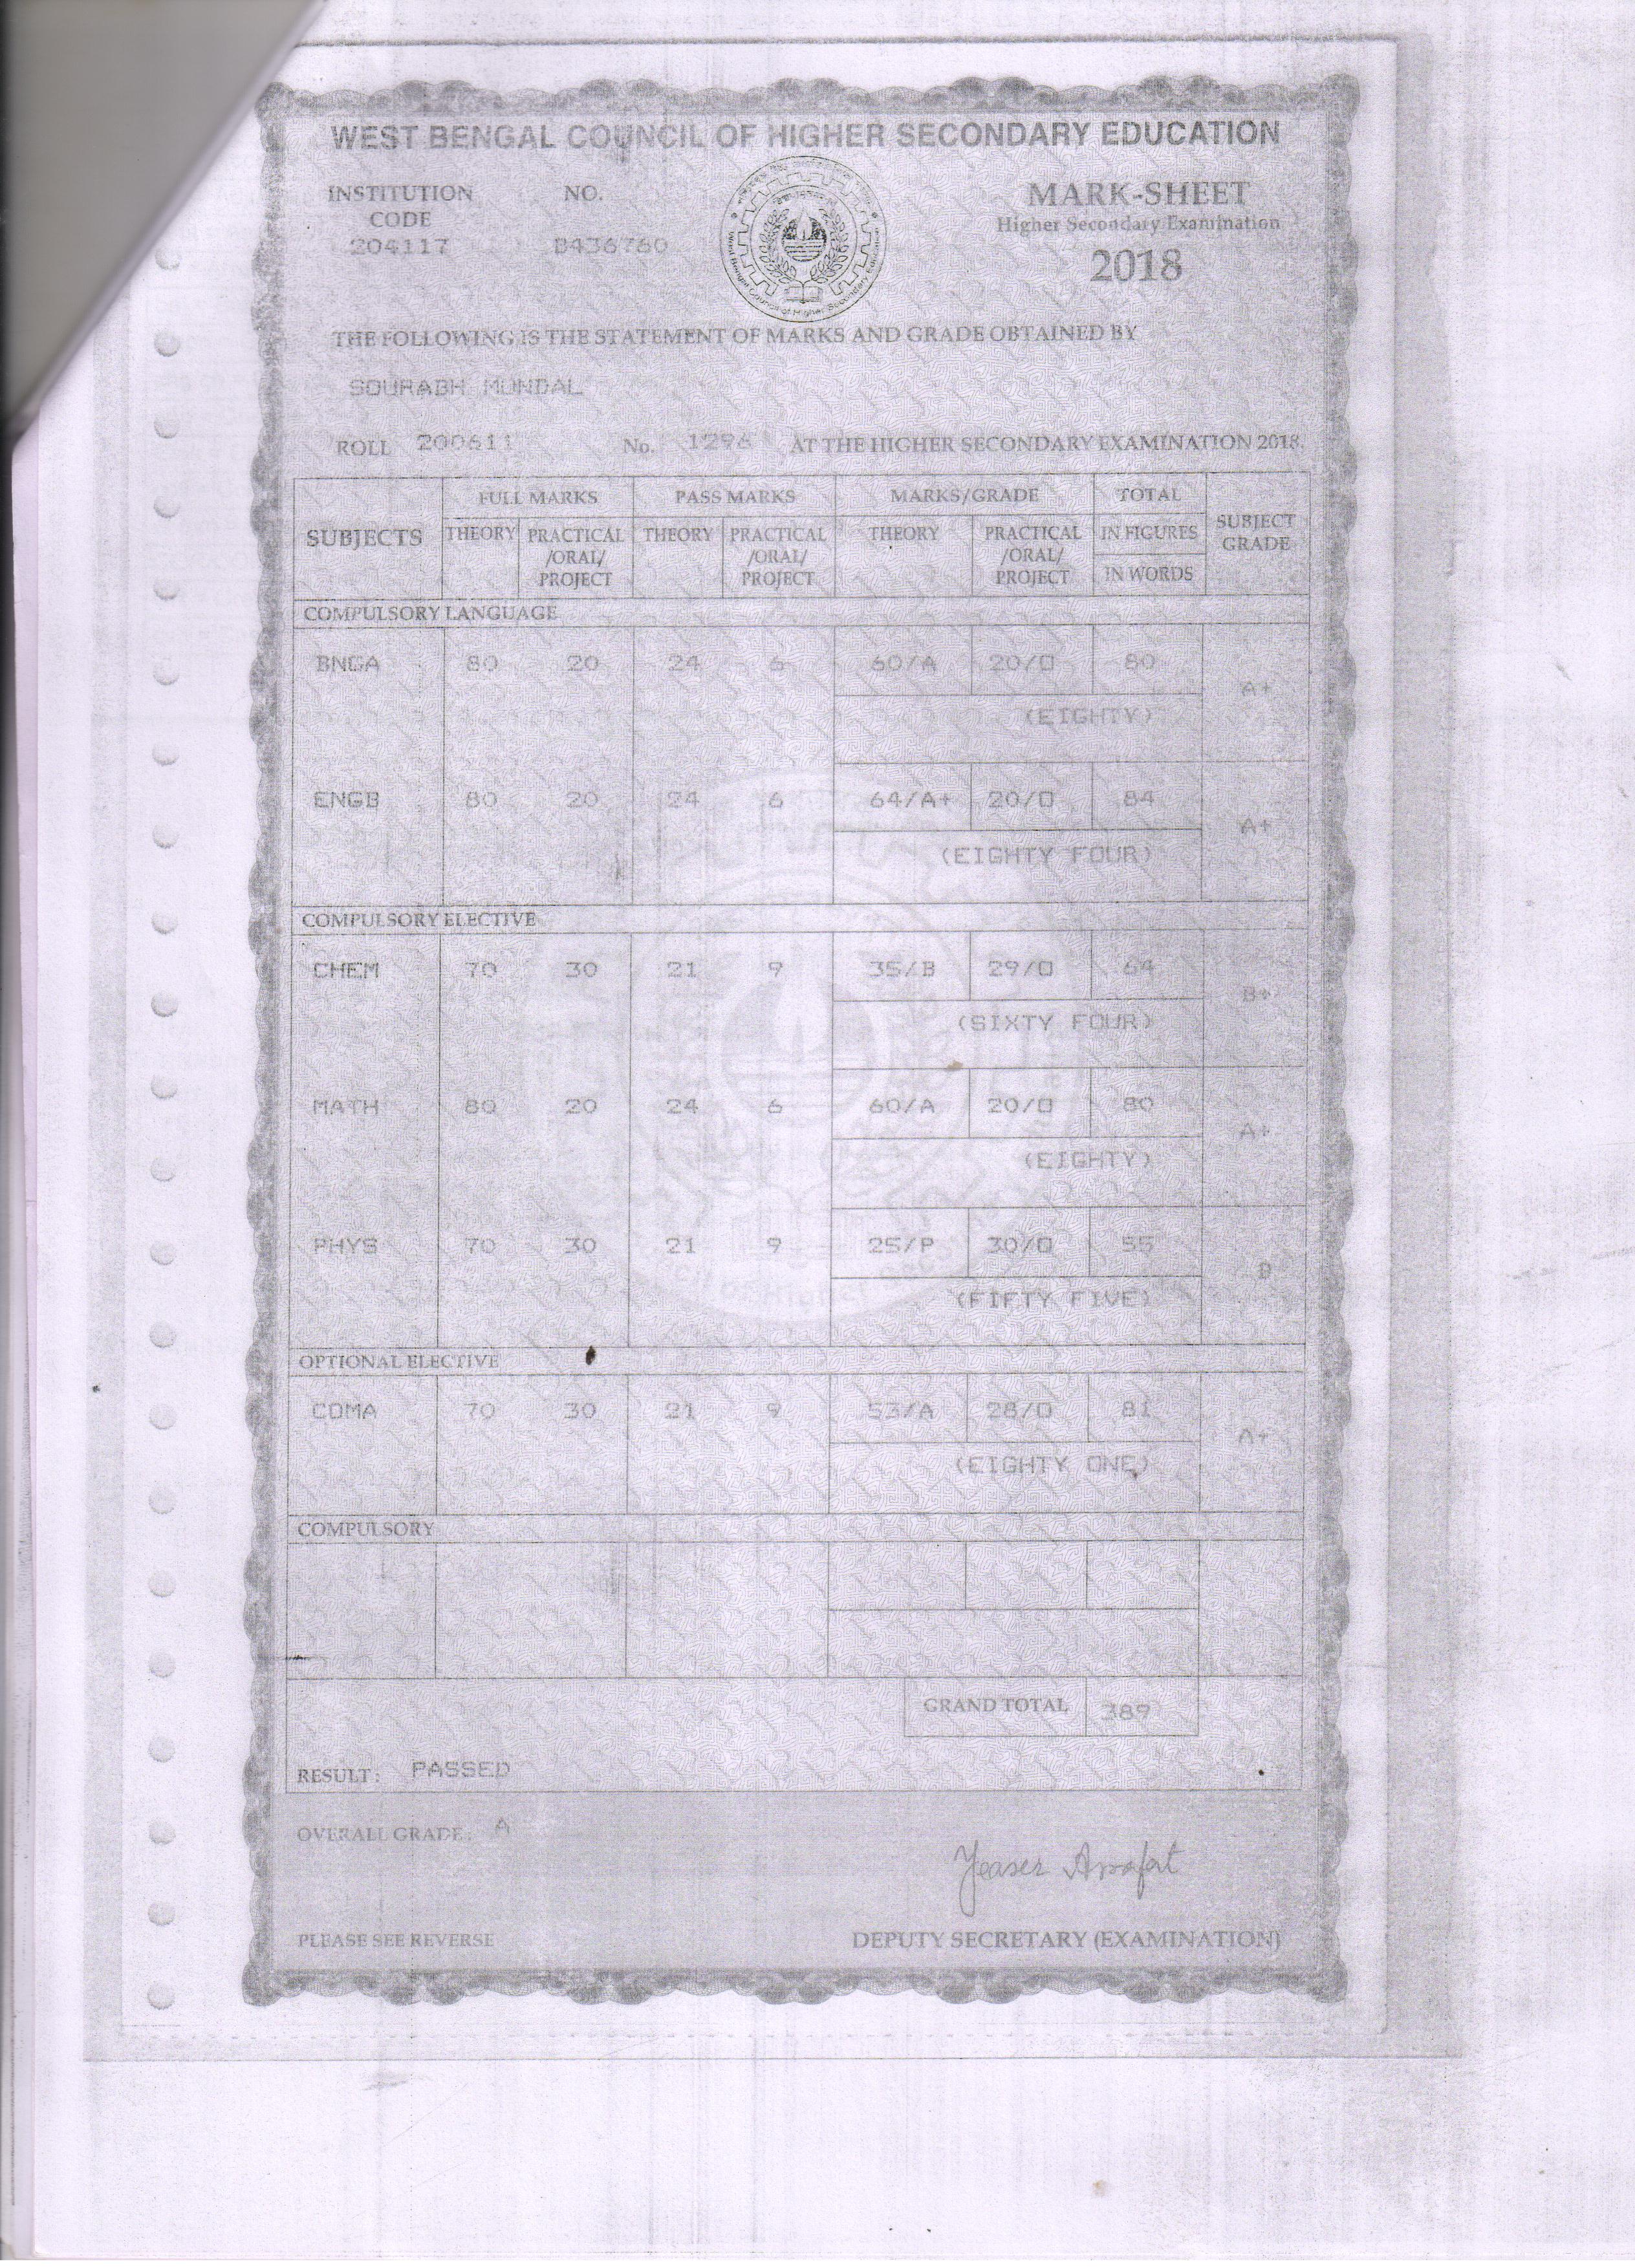 WEST BENGAL COUNCIL OF HIGHER SECONDARY EDUCATION
INSTITUTION CODE NO.
204117 B436760
MARK-SHEET
Higher Secondary Examination
2018
THE FOLLOWING IS THE STATEMENT OF MARKS AND GRADE OBTAINED BY
SOURABH MONDAL
ROLL 200611 No. 1296 AT THE HIGHER SECONDARY EXAMINATION 2018.
SUBJECTS FULL MARKS PASS MARKS MARKS/GRADE TOTAL SUBJECT GRADE
THEORY PRACTICAL /ORAL/ PROJECT THEORY PRACTICAL /ORAL/ PROJECT THEORY PRACTICAL /ORAL/ PROJECT IN FIGURES
IN WORDS
COMPULSORY LANGUAGE
BNGA 80 20 24 6 60/A 20/O 80 A+
(EIGHTY)
ENGB 80 20 24 6 64/A+ 20/O 84 A+
(EIGHTY FOUR)
COMPULSORY ELECTIVE
CHEM 70 30 21 9 35/B 29/O 64 B+
(SIXTY FOUR)
MATH 80 20 24 6 60/A 20/O 80 A+
(EIGHTY)
PHYS 70 30 21 9 25/P 30/O 55 B
(FIFTY FIVE)
OPTIONAL ELECTIVE
COMA 70 30 21 9 53/A 28/O 81 A+
(EIGHTY ONE)
COMPULSORY
GRAND TOTAL 389
RESULT : PASSED
OVERALL GRADE : A
Yeaser Arrafat
PLEASE SEE REVERSE DEPUTY SECRETARY (EXAMINATION)